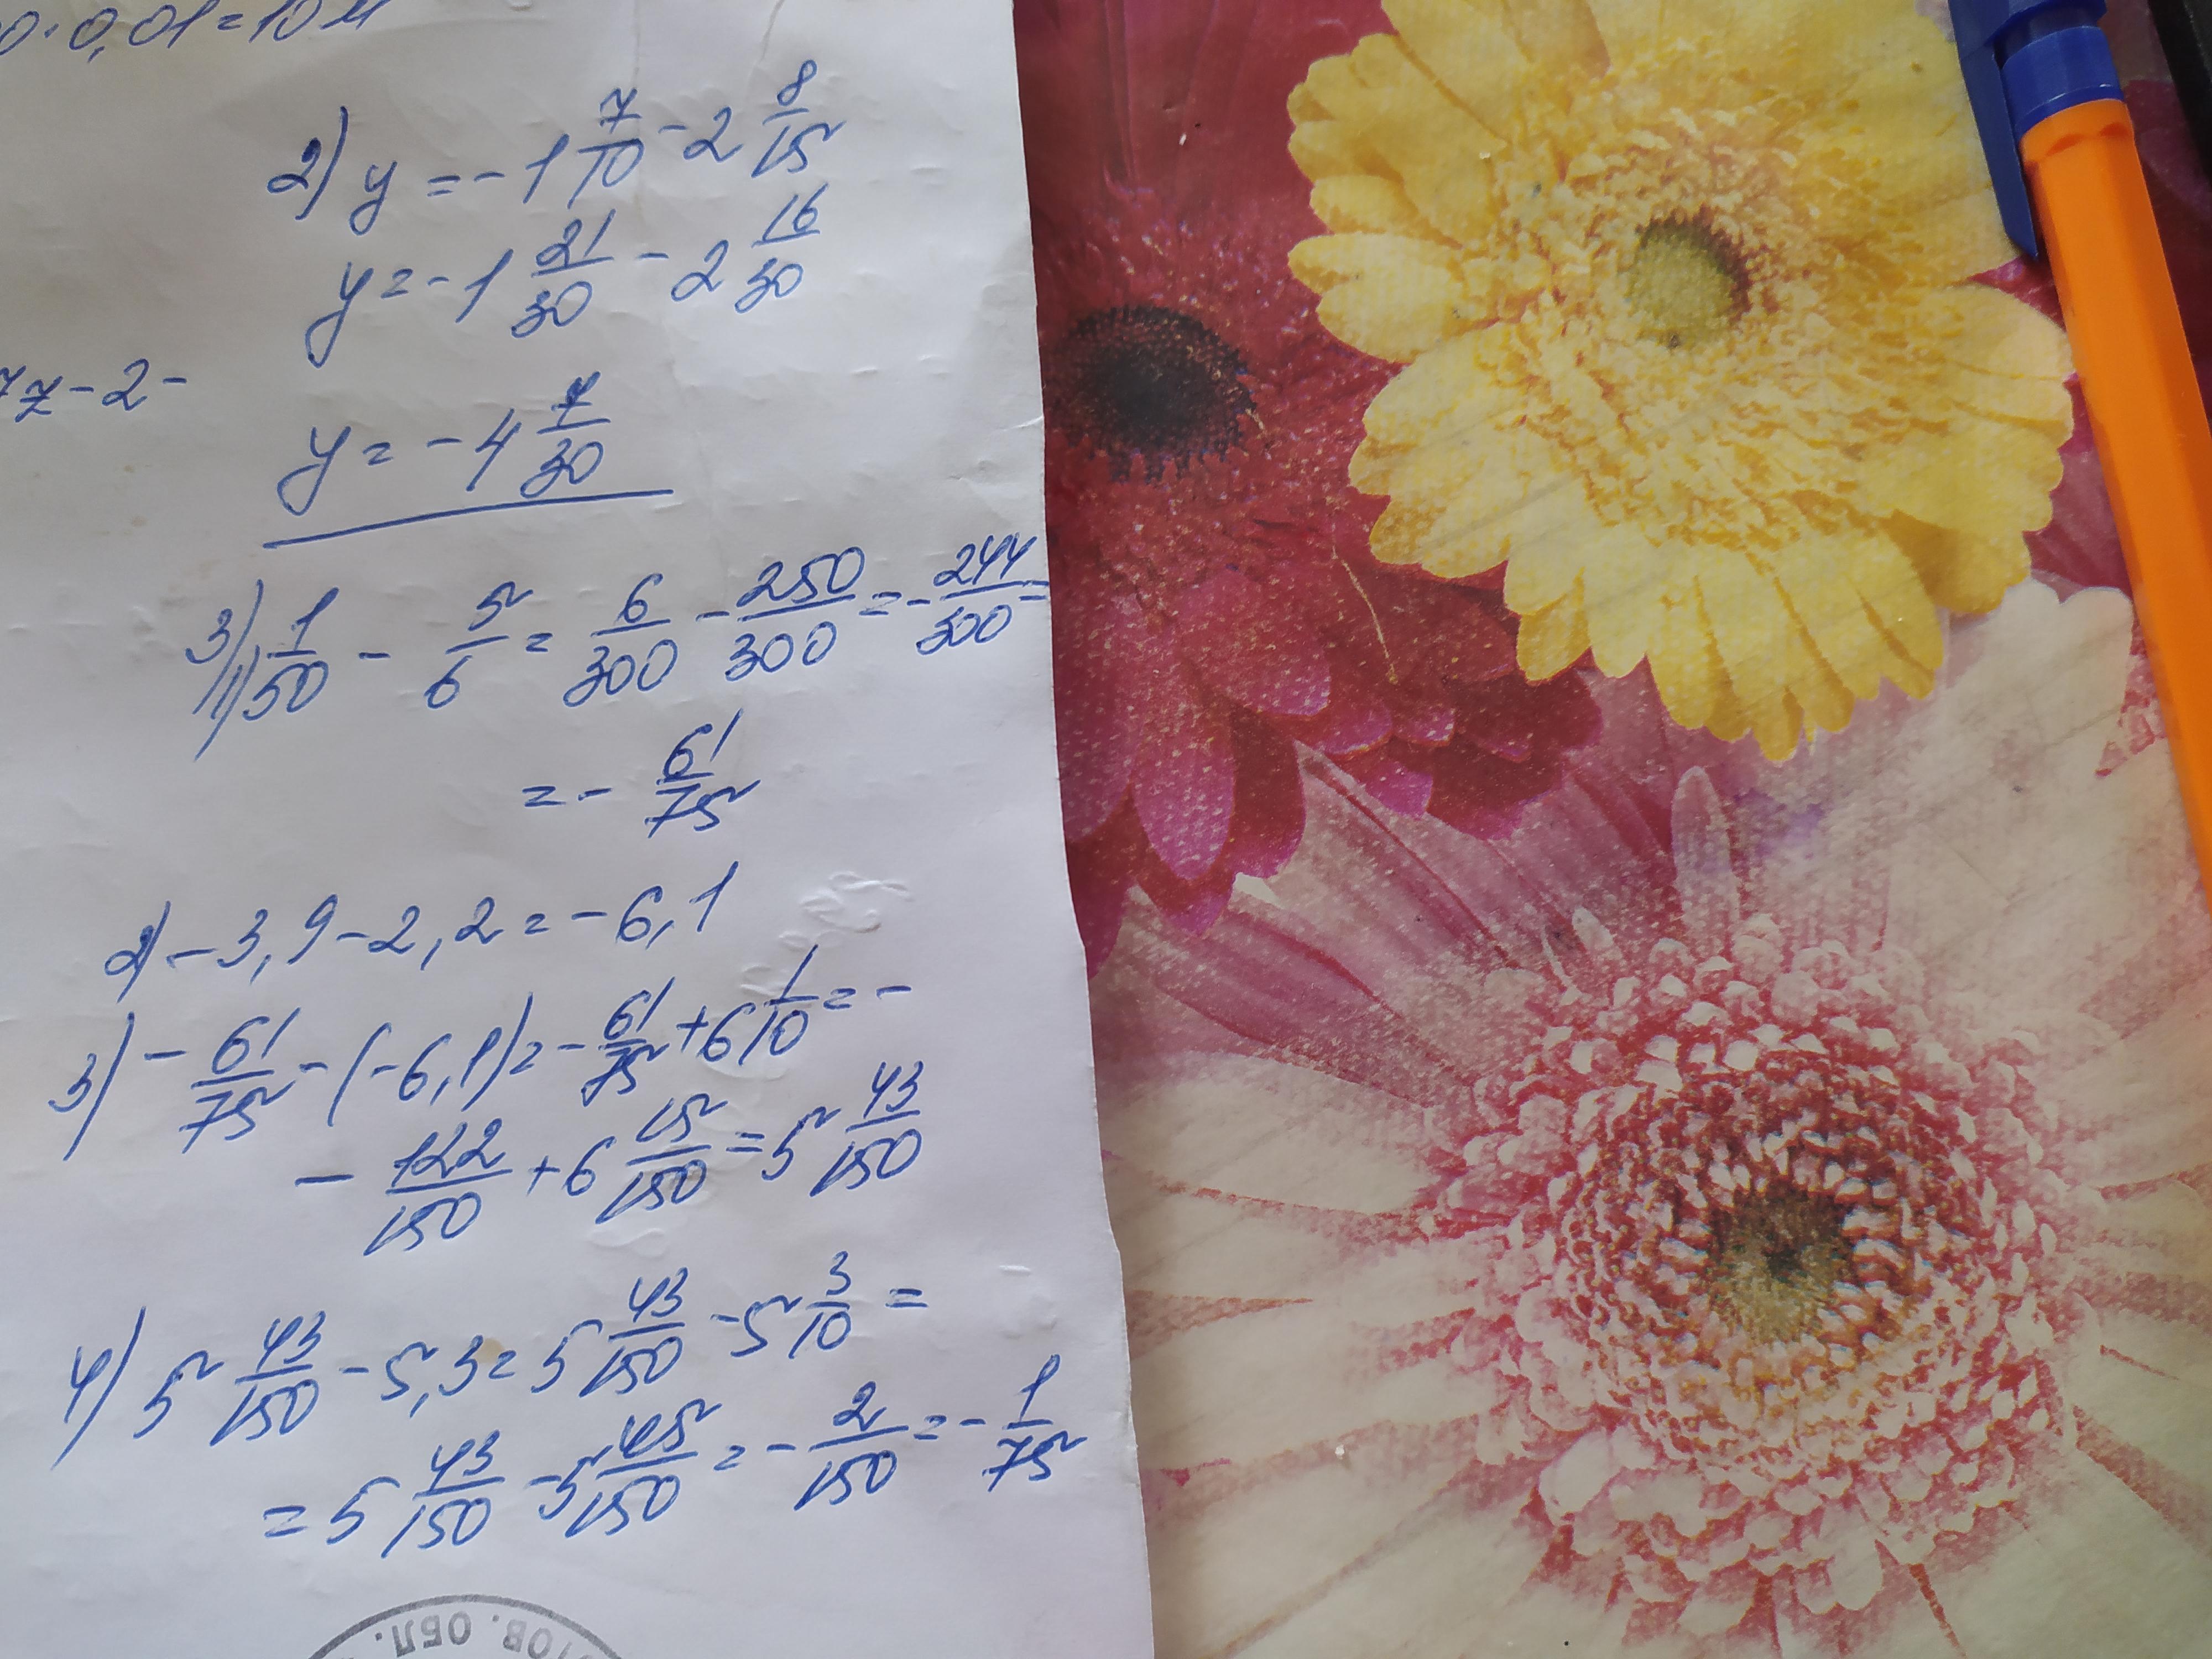 0·0,01=10м
2) y = -1 7/10 - 2 8/15
y = -1 21/30 - 2 16/30
7z-2-
y = -4 7/30
3) 1) 1/50 - 5/6 = 6/300 - 250/300 = - 244/300 =
= - 61/75
2) -3,9-2,2=-6,1
3) - 61/75 - (-6,1) = - 61/75 + 6 1/10 = -
- 122/150 + 6 15/150 = 5 43/150
4) 5 43/150 - 5,3 = 5 43/150 - 5 3/10 =
= 5 43/150 - 5 45/150 = - 2/150 = - 1/75
ОВ. ОБЛ.